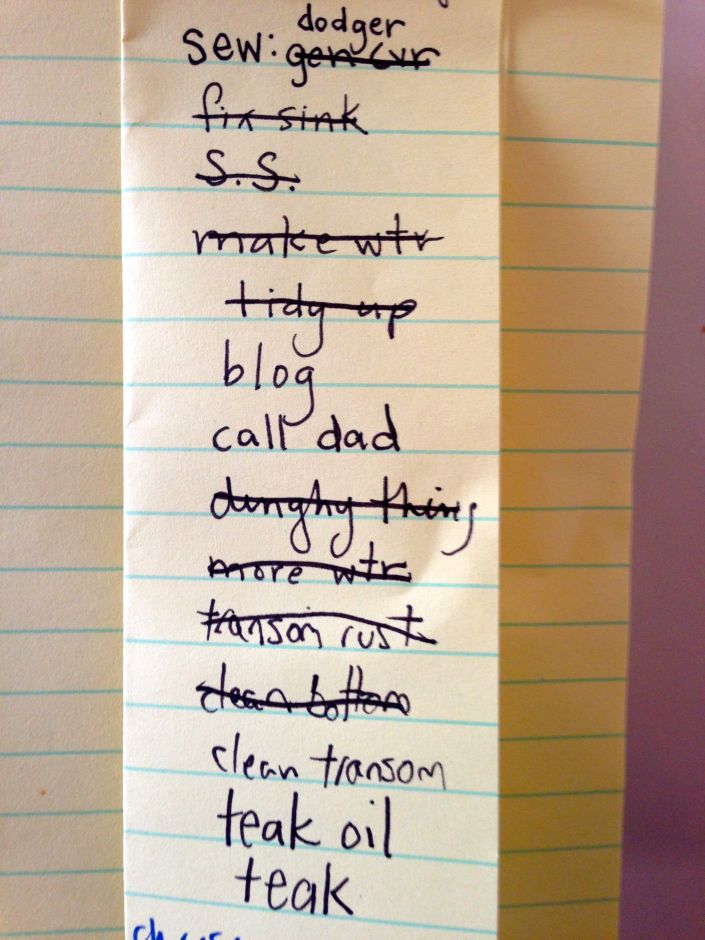 dodger
sew: gen cvr
fix sink
S.S.
make wtr
tidy up
blog
call dad
dinghy thing
more wtr
transom rust
clean bottom
clean transom
teak oil
teak